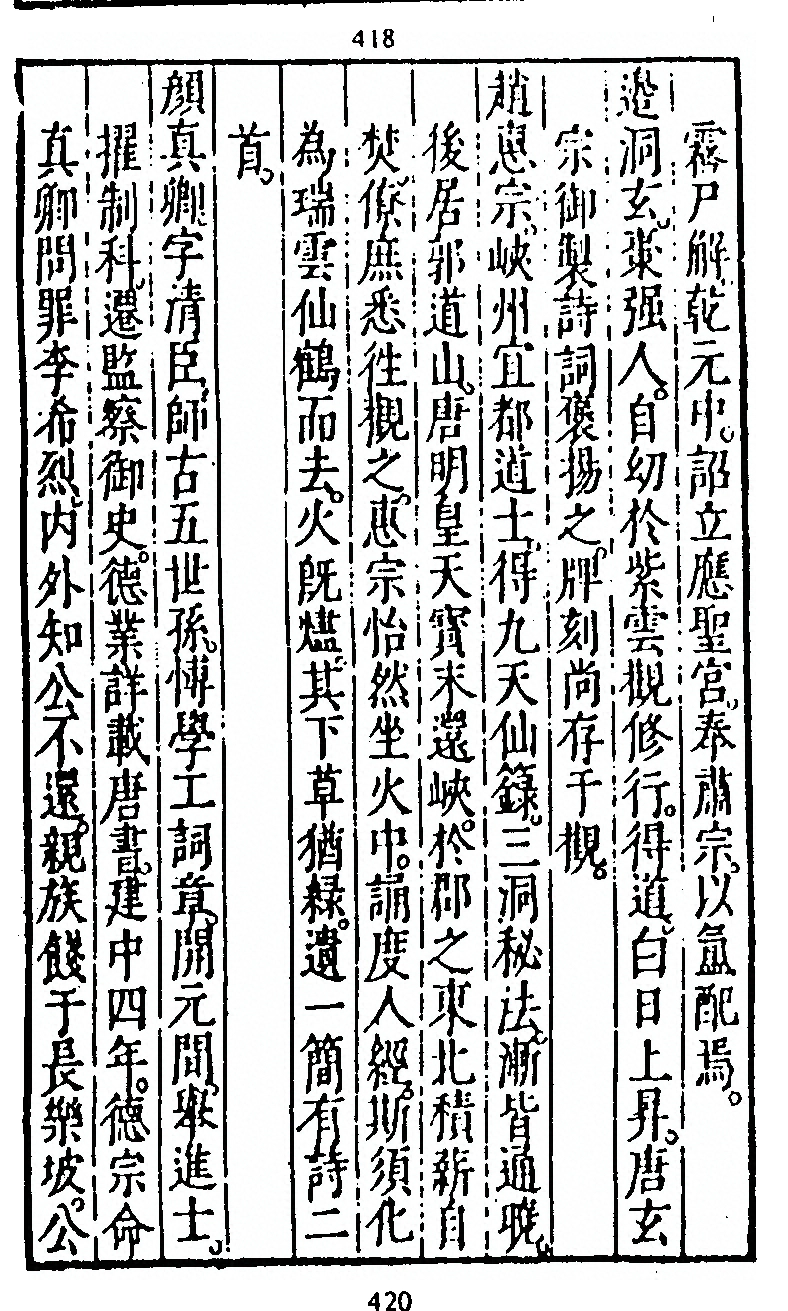 418
霧尸解乾元中。詔立應聖宮。奉肅宗。以氤配焉。
邊洞玄。棗强人。自幼於紫雲觀修行。得道。白日上昇。唐玄
宗御製詩詞褒揚之。牌刻尚存于觀。
趙惠宗。峽州宜都道士。得九天仙籙。三洞秘法。漸皆通曉。
後居郭道山。唐明皇天寶末還峽。於郡之東北積薪自
焚。僚庶悉徃觀之。惠宗怡然坐火中。誦度人經。斯須化
為瑞雲仙鶴而去。火既燼。其下草猶緑。遺一簡有詩二
首。
顔真卿。字清臣。師古五世孫。博學工詞章。開元間。舉進士。
擢制科。遷監察御史。德業詳載唐書。建中四年。德宗命
真卿問罪李希烈。内外知公不還。親族餞于長樂坡。公
420